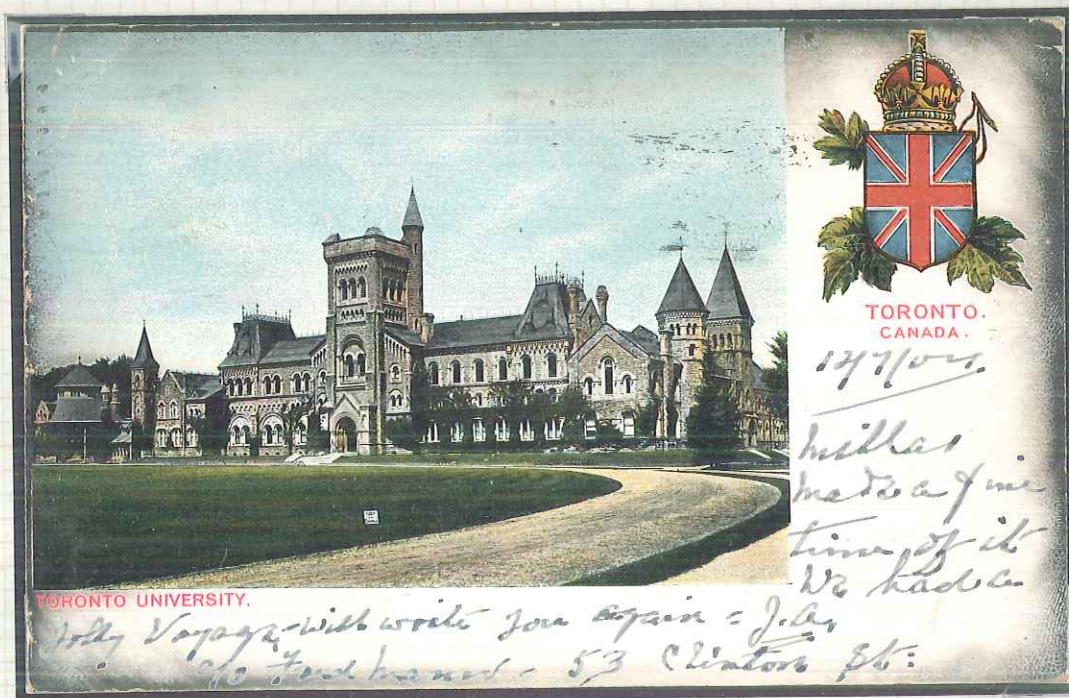 TORONTO.
CANADA.
14/7/04
Millar
made a fine
time of it
We had a
TORONTO UNIVERSITY.
Jolly Voyage - will write you again - J.A.
c/o Fred - 53 Clinton St: